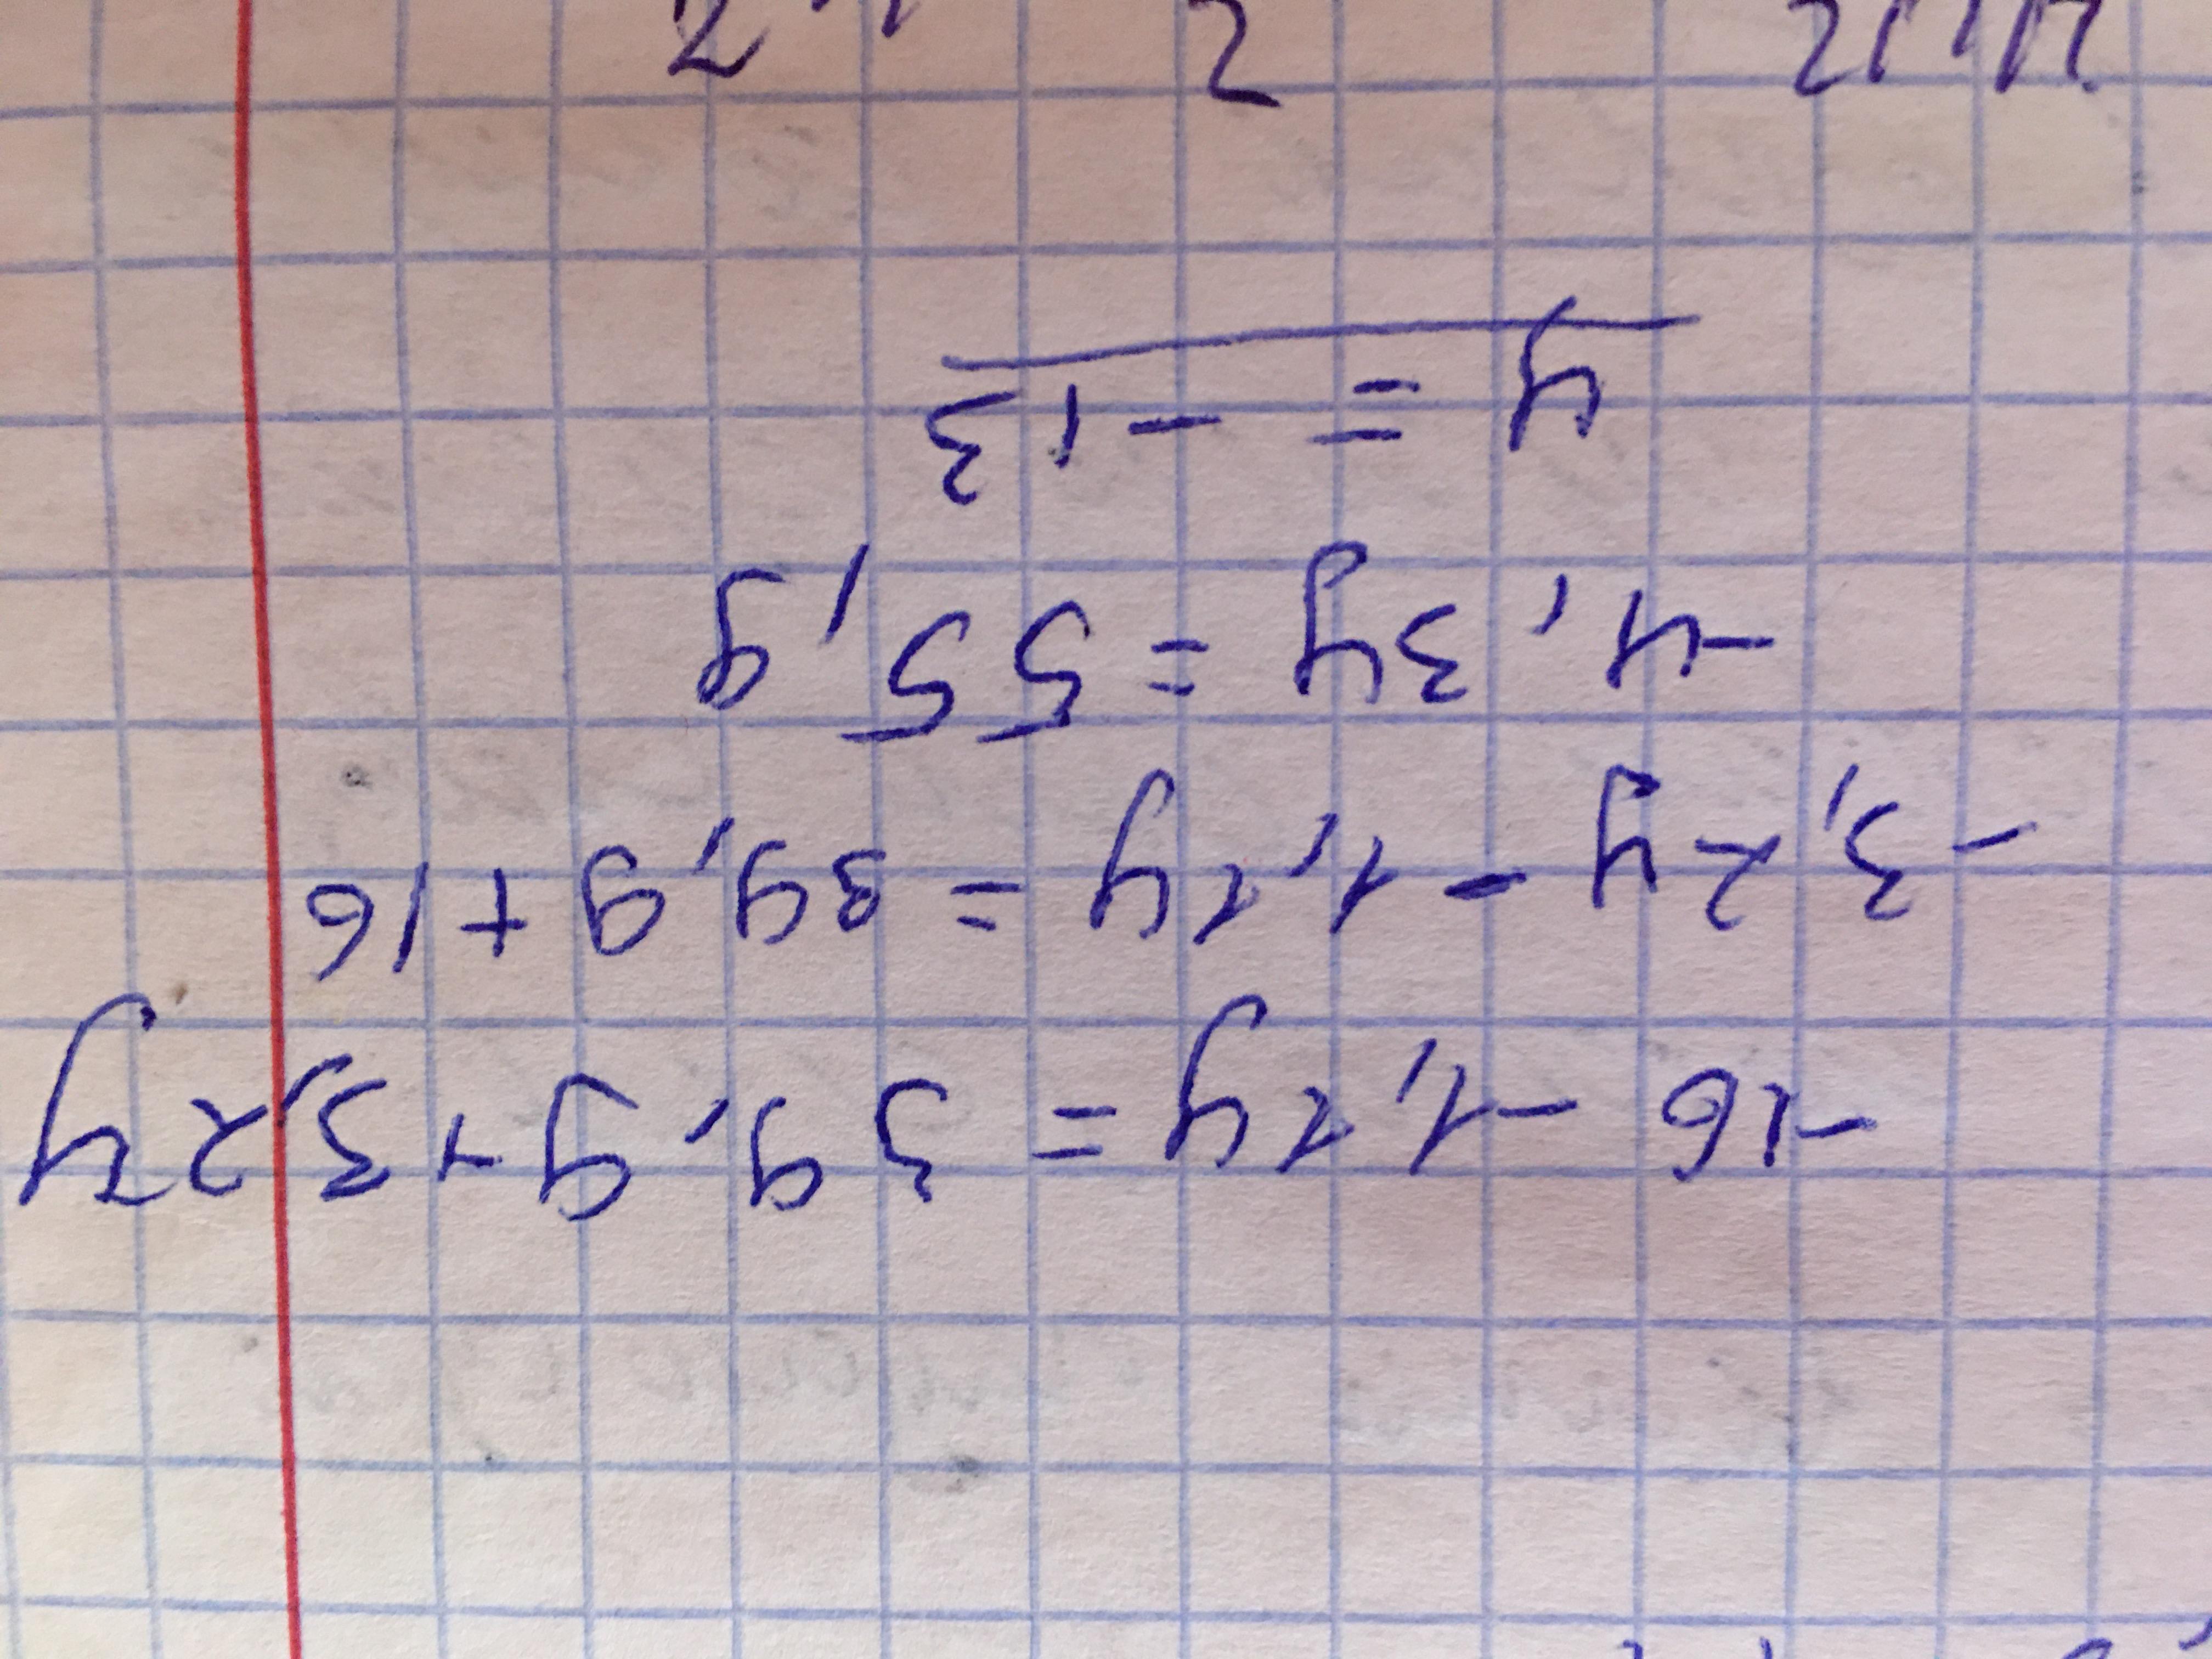 -16 -1,1y = 39,9+3,2y
-3,2y - 1,1y = 39,9+16
-4,3y = 55,9
y = -13